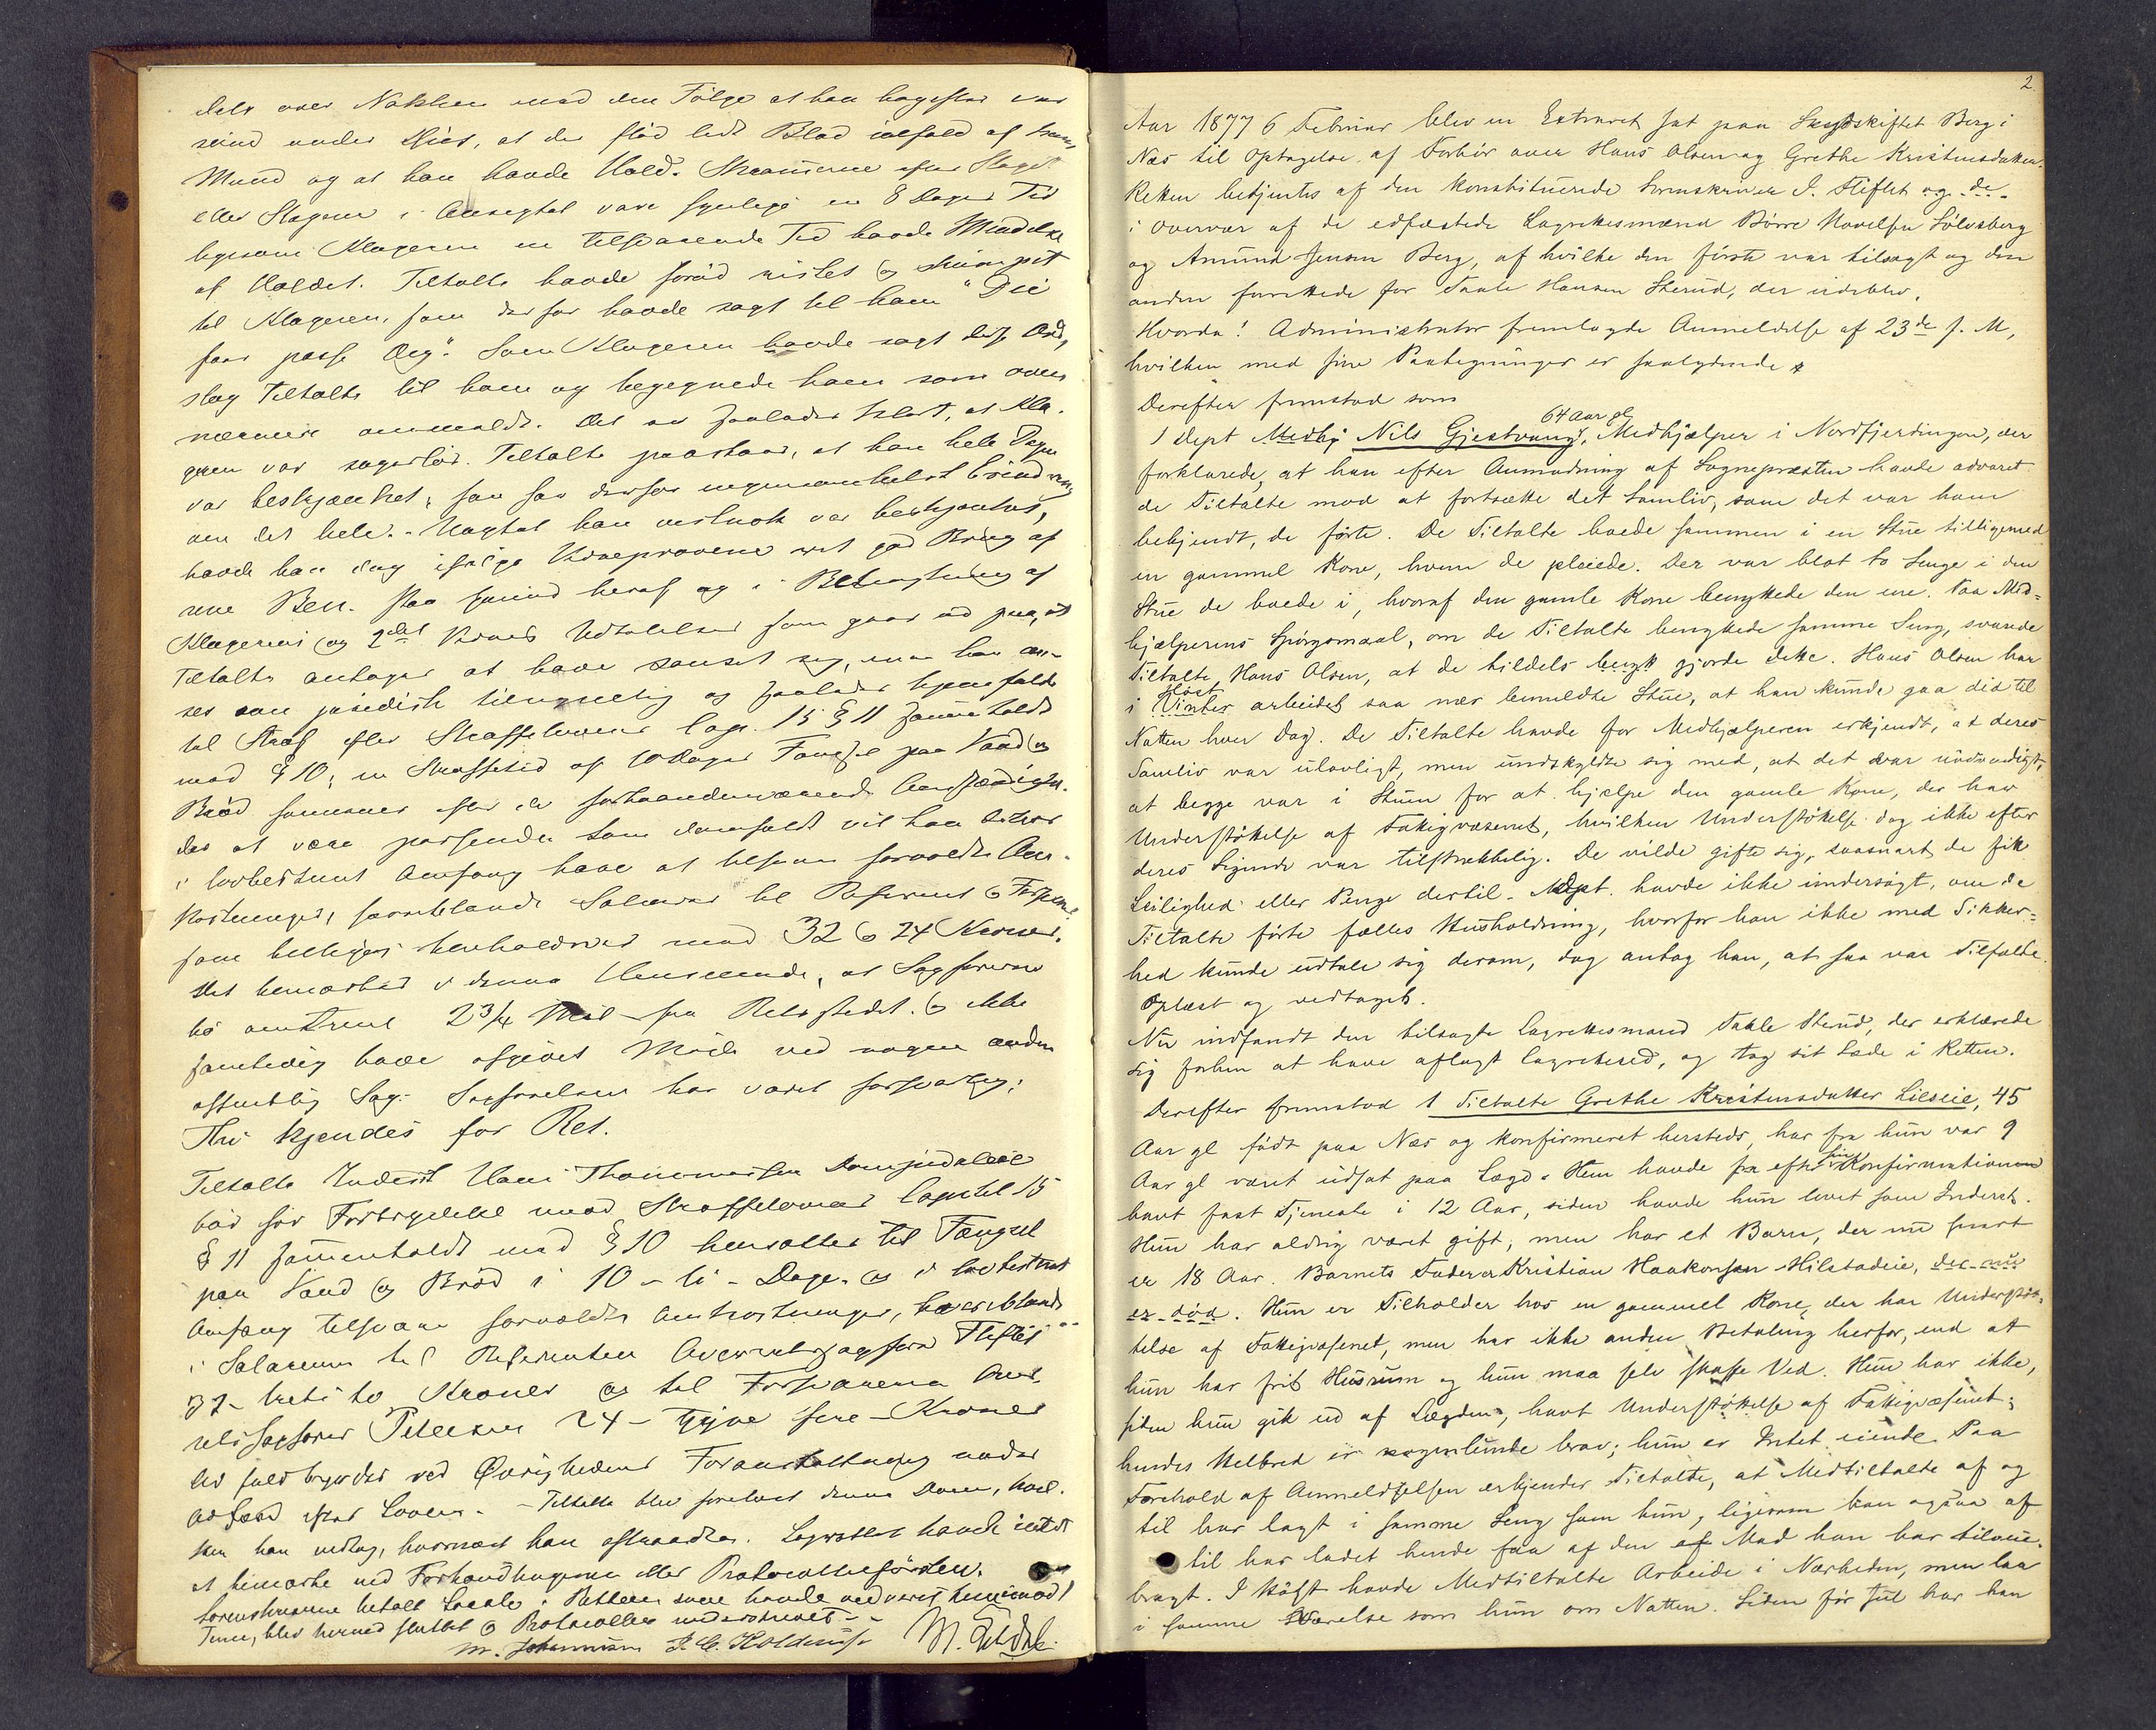 dels over Nakken med den Følge at han bagefter var
under Øiet, at der flød lidt Blod ialfald af hans
Mund og at han havde Vold. Skrammerne efter Slaget
eller Slagene i Ansigtet vare synlige en 8 Dages Tid
ligesom Klageren en tilsvarende Tid havde
af Tiltalte havde forud ristet og skumpet
til Klageren, som derfor havde sagt til ham "Du
faar passe Deg". Som Klageren havde sagt disse Ord,
slog Tiltalte til ham og begegnede ham som oven
nærmere anmeldt. Det er saaledes klart, at Kla-
geren var sagesløs. Tiltalte paastaar, at han hele Dagen
var beskjænket, saa han derfor ingensomhelst Erindring
om det hele. - Uagtet han vistnok var beskjænket,
havde han dog ifølge Vidneprovene vel god Brug af
sine Ben. Paa Grund heraf og i Betragtning af
Klagerens og 2det Vidnes Udtalelser som gaar ud paa, at
Tiltalte antages at have sanset sig, maa han an-
sees som juridisk tilregnelig og saaledes hjemfalden
til Straf efter Straffelovens Cap. 15 § 11 sammenholdt
med § 10; en Straffetid af 10 Dages Fængsel paa Vand og
Brød sammes efter de forhaandenværende Omstændighe-
der at være passende. Som domfældt vil han derhos
i lovbestemt Omfang have at tilsvare forvoldte Om-
kostninger, herunder Salarier til Referent & Forsvarer
som billiges henholdsvis med 32 & 24 Kroner.
Det bemærkes i denne Henseende, at Sagføreren
bo omtrent 2 3/4 Mil fra Retsstedet & ikke
samtidig have afgivet Møde ved nogen anden
offentlig Sag. Sagførelsen har været forsvarlig.
Thi kjendes for Ret.
Tiltalte Inderst Hans Thommessen
bør for Forbrydelse mod Straffelovens Capitel 15
§ 11 sammenholdt med § 10 hensættes til Fængsel
paa Vand og Brød i 10 - ti - Dage og i lovbestemt
Omfang tilsvare forvoldte Omkostninger, heriblandt
i Salarium til Referenten Overretssagfører Fliflet
32 - treti to Kroner og til Forsvareren Over-
retssagfører Petersen 24 - tyve fire - Kroner
At fuldbyrdes ved Øvrighedens Foranstaltning under
Adfærd efter Loven. - Tiltalte blev forelæst denne Dom, hvil-
ken han vedtog, hvornæst han aftraadte. Lagretten havde intet
at bemærke ved Forhandlingerne eller Protocolførselen.
Sorenskriveren betalt Locale i Retten som havde vedvaret henimod 1
Time, blev hermed sluttet & Protocollen underskrevet -
M. Johannesen

2.
Aar 1877 6 Februar blev en Extraret sat paa Skydsskiftet Berg i
Næs til Optagelse af Forhør over Hans Olsen og Grethe Kristensdatter.
Retten betjentes af den konstituerede Sorenskriver J. Fliflet og de-
i Overvær af de edfæstede Lagrettesmænd Børre Solvsberg
og Amund Jensen Berg, af hvilke den første var tilsagt og den
anden fremstillede for Taale Hansen Sterud, der udeblev.
Hvorda! Administrator fremlagde Anmeldelse af 23de f. M,
hvilken med sine Paategninger er saalydende
Derefter fremstod som
64 Aar gl
1 Dept Medhj Nils Gjestvang, Medhjælper i Nordfjerdingen, der
forklarede, at han efter Anmodning af Sognepræsten havde advaret
de Tiltalte mod at fortsætte det Samliv, som det var ham
bekjendt, de førte. De Tiltalte boede sammen i en Stue tilligemed
en gammel Kone, hvem de pleiede. Der var blot to Senge i den
Stue de boede i, hvoraf den gamle Kone benyttede den ene. Paa Med-
hjælperens Spørgsmaal, om de Tiltalte benyttede samme Seng, svarede
Tiltalte, Hans Olsen, at de tildels benytt gjorde dette. Hans Olsen har
i Vinter Høst arbeidet saa nær bemeldte Stue, at han kunde gaa did til
Natten hver Dag. De Tiltalte havde for Medhjælperen erkjendt, at deres
Samliv var ulovligt, men undskyldte sig med, at det var nødvendigt,
at begge var i Stuen for at hjælpe den gamle Kone, der har
Understøttelse af Fattigvæsenet, hvilken Understøttelse dog ikke efter
deres Sigende var tilstrækkelig. De vilde gifte sig, saasnart de fik
Leilighed eller Penge dertil. Dept. havde ikke undersøgt, om de
Tiltalte førte fælles Husholdning, hvorfor han ikke med Sikker-
hed kunde udtale sig derom, dog antog han, at saa var Tilfælde.
Oplæst og vedtaget.
Nu indfandt den tilsagte Lagrettesmand Taale Sterud, der erklærede
sig forhen at have aflagt Lagretteed, og tog sit Sæde i Retten.
Derefter fremstod 1 Tiltalte Grethe Kristensdatter Lieseie, 45
Aar gl født paa Næs og konfirmeret hersteds, har fra hun var 9
Aar gl været udsat paa Lægd. Hun havde fra efter sin Konfirmationen
havt fast Tjeneste i 12 Aar, siden havde hun levet som Inderst.
Hun har aldrig været gift, men har et Barn, der nu snart
er 18 Aar. Barnets Fader er Kristian Haakonsen Hilstadeie, der nu
er død. Hun er Tilholder hos en gammel Kone, der har Understøt-
telse af Fattigvæsenet, men har ikke anden Betaling herfor, end at
hun har frit Husrum og hun maa selv skaffe Ved. Hun har ikke,
siden hun gik ud af Lægden, havt Understøttelse af Fattigvæsenet;
hendes Helbred er nogenlunde brav; hun er Intet eiende. Paa
Forehold af Anmeldelsen erkjender Tiltalte, at Medtiltalte af og
til har lagt i samme Seng som hun, ligesom han ogsaa af
til har ladet hende faa af den af Mad han har tilveie-
bragt. I Høst havde Medtiltalte Arbeide i Nærheden, men laa
i samme Værelse som hun om Natten. Siden før Jul har han